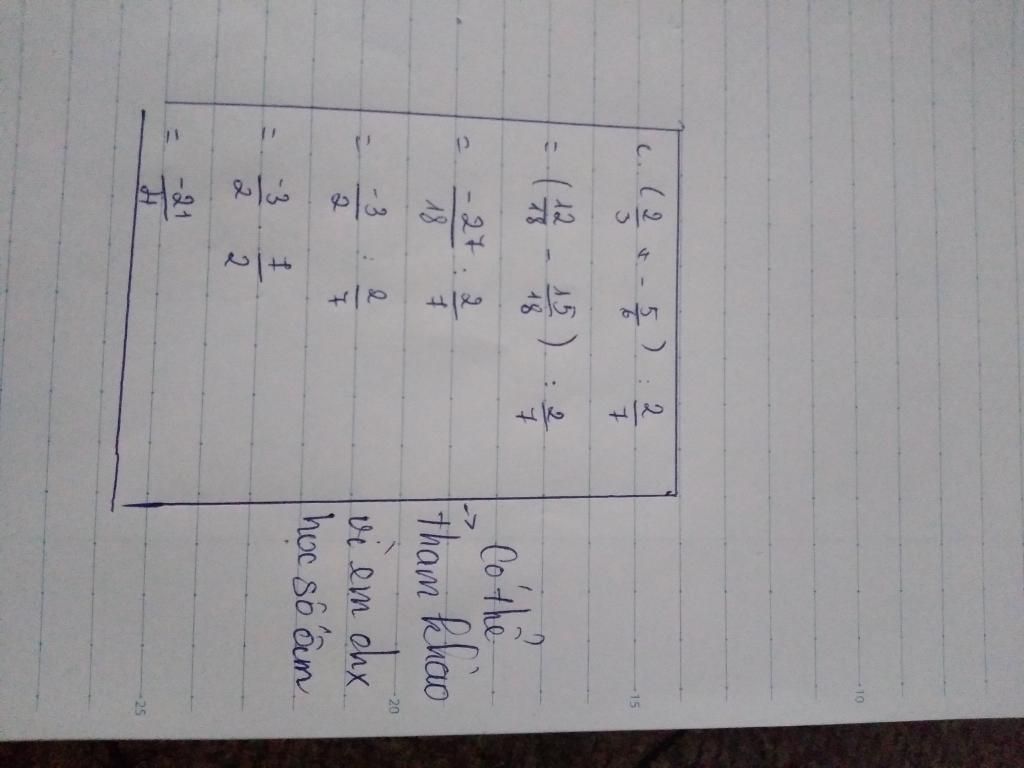 c. (2/3 + -5/6) : 2/7
= (12/18 - 15/18) : 2/7
= -27/18 : 2/7
= -3/2 : 2/7
= -3/2 . 7/2
= -21/4
-> Có thể
tham khảo
vì em chx
học số âm
10
15
-20
-25